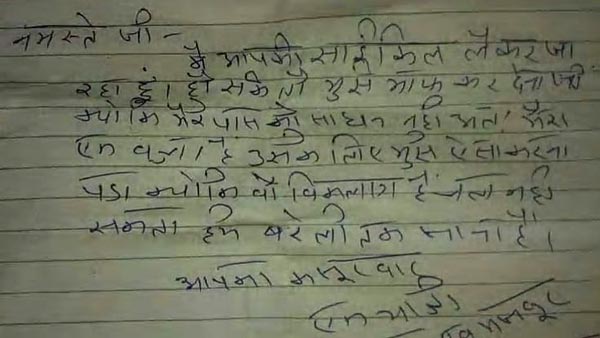 नमस्ते जी -
मै आपकी साईकिल लेकर जा
रहा हूं। हो सके तो मुझे माफ कर देना जी
क्योकि मेरे पास को साधन नही अतः मेरा
एक बच्चा है उसके लिए मुझे ऐसा करना
पडा क्योकि वो विकलाग है चल नही
सकता हमे बरेली तक जाना है।
आपका कसूरवार
एक यात्री
मजदूर